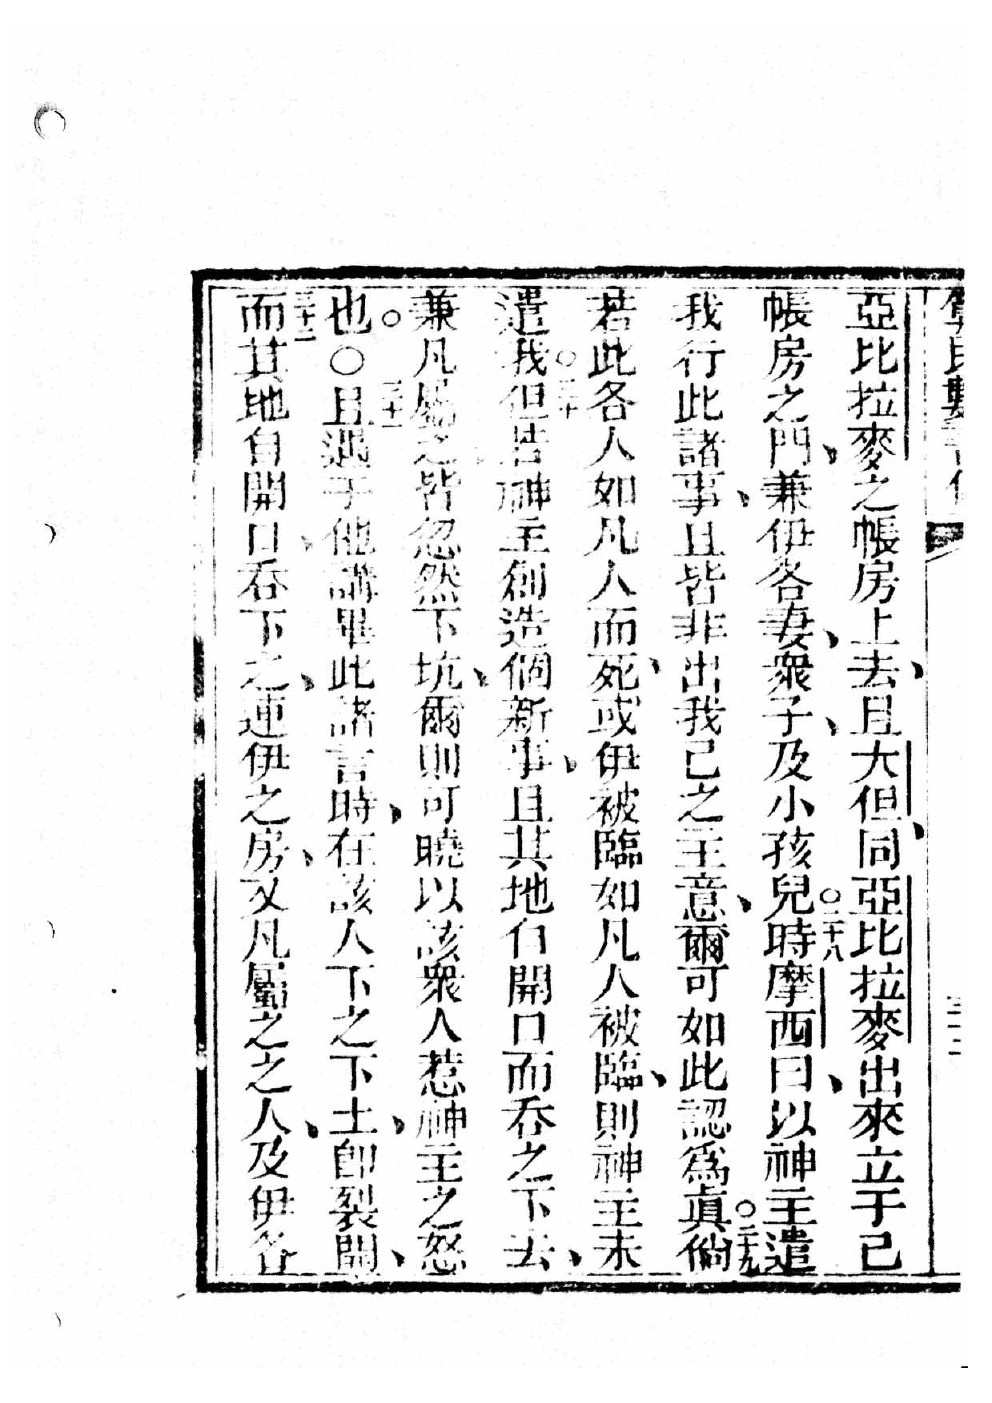 亞比拉麥之帳房上去、且大但、同亞比拉麥出來立于己
帳房之門、兼伊各妻、眾子、及小孩兒○二十八時摩西曰、以神主遣
我行此諸事、且皆非出我己之主意、爾可如此認為眞○二十九倘
若此各人如凡人而死、或伊被臨如凡人被臨、則神主未
遣我○三十但若神主創造個新事、且其地自開口而吞之下去、
兼凡屬之皆忽然下坑、爾則可曉以該眾人惹神主之怒
也○三十一且遇于他講畢此諸言時、在該人下之下土、卽裂開、
三十二而其地自開口、吞下之、連伊之房、又凡屬之之人、及伊各
數